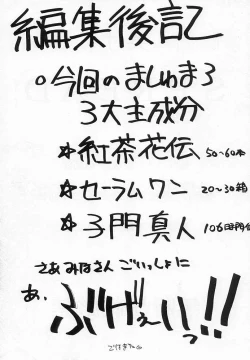 編集後記
○今回のましゅまろ
3大主成分
☆紅茶花伝 50~60本
☆セーラムワン 20~30箱
☆子門真人 106時間
さぁみなさんごいっしょに
あ、
ぶげぇいっ!!